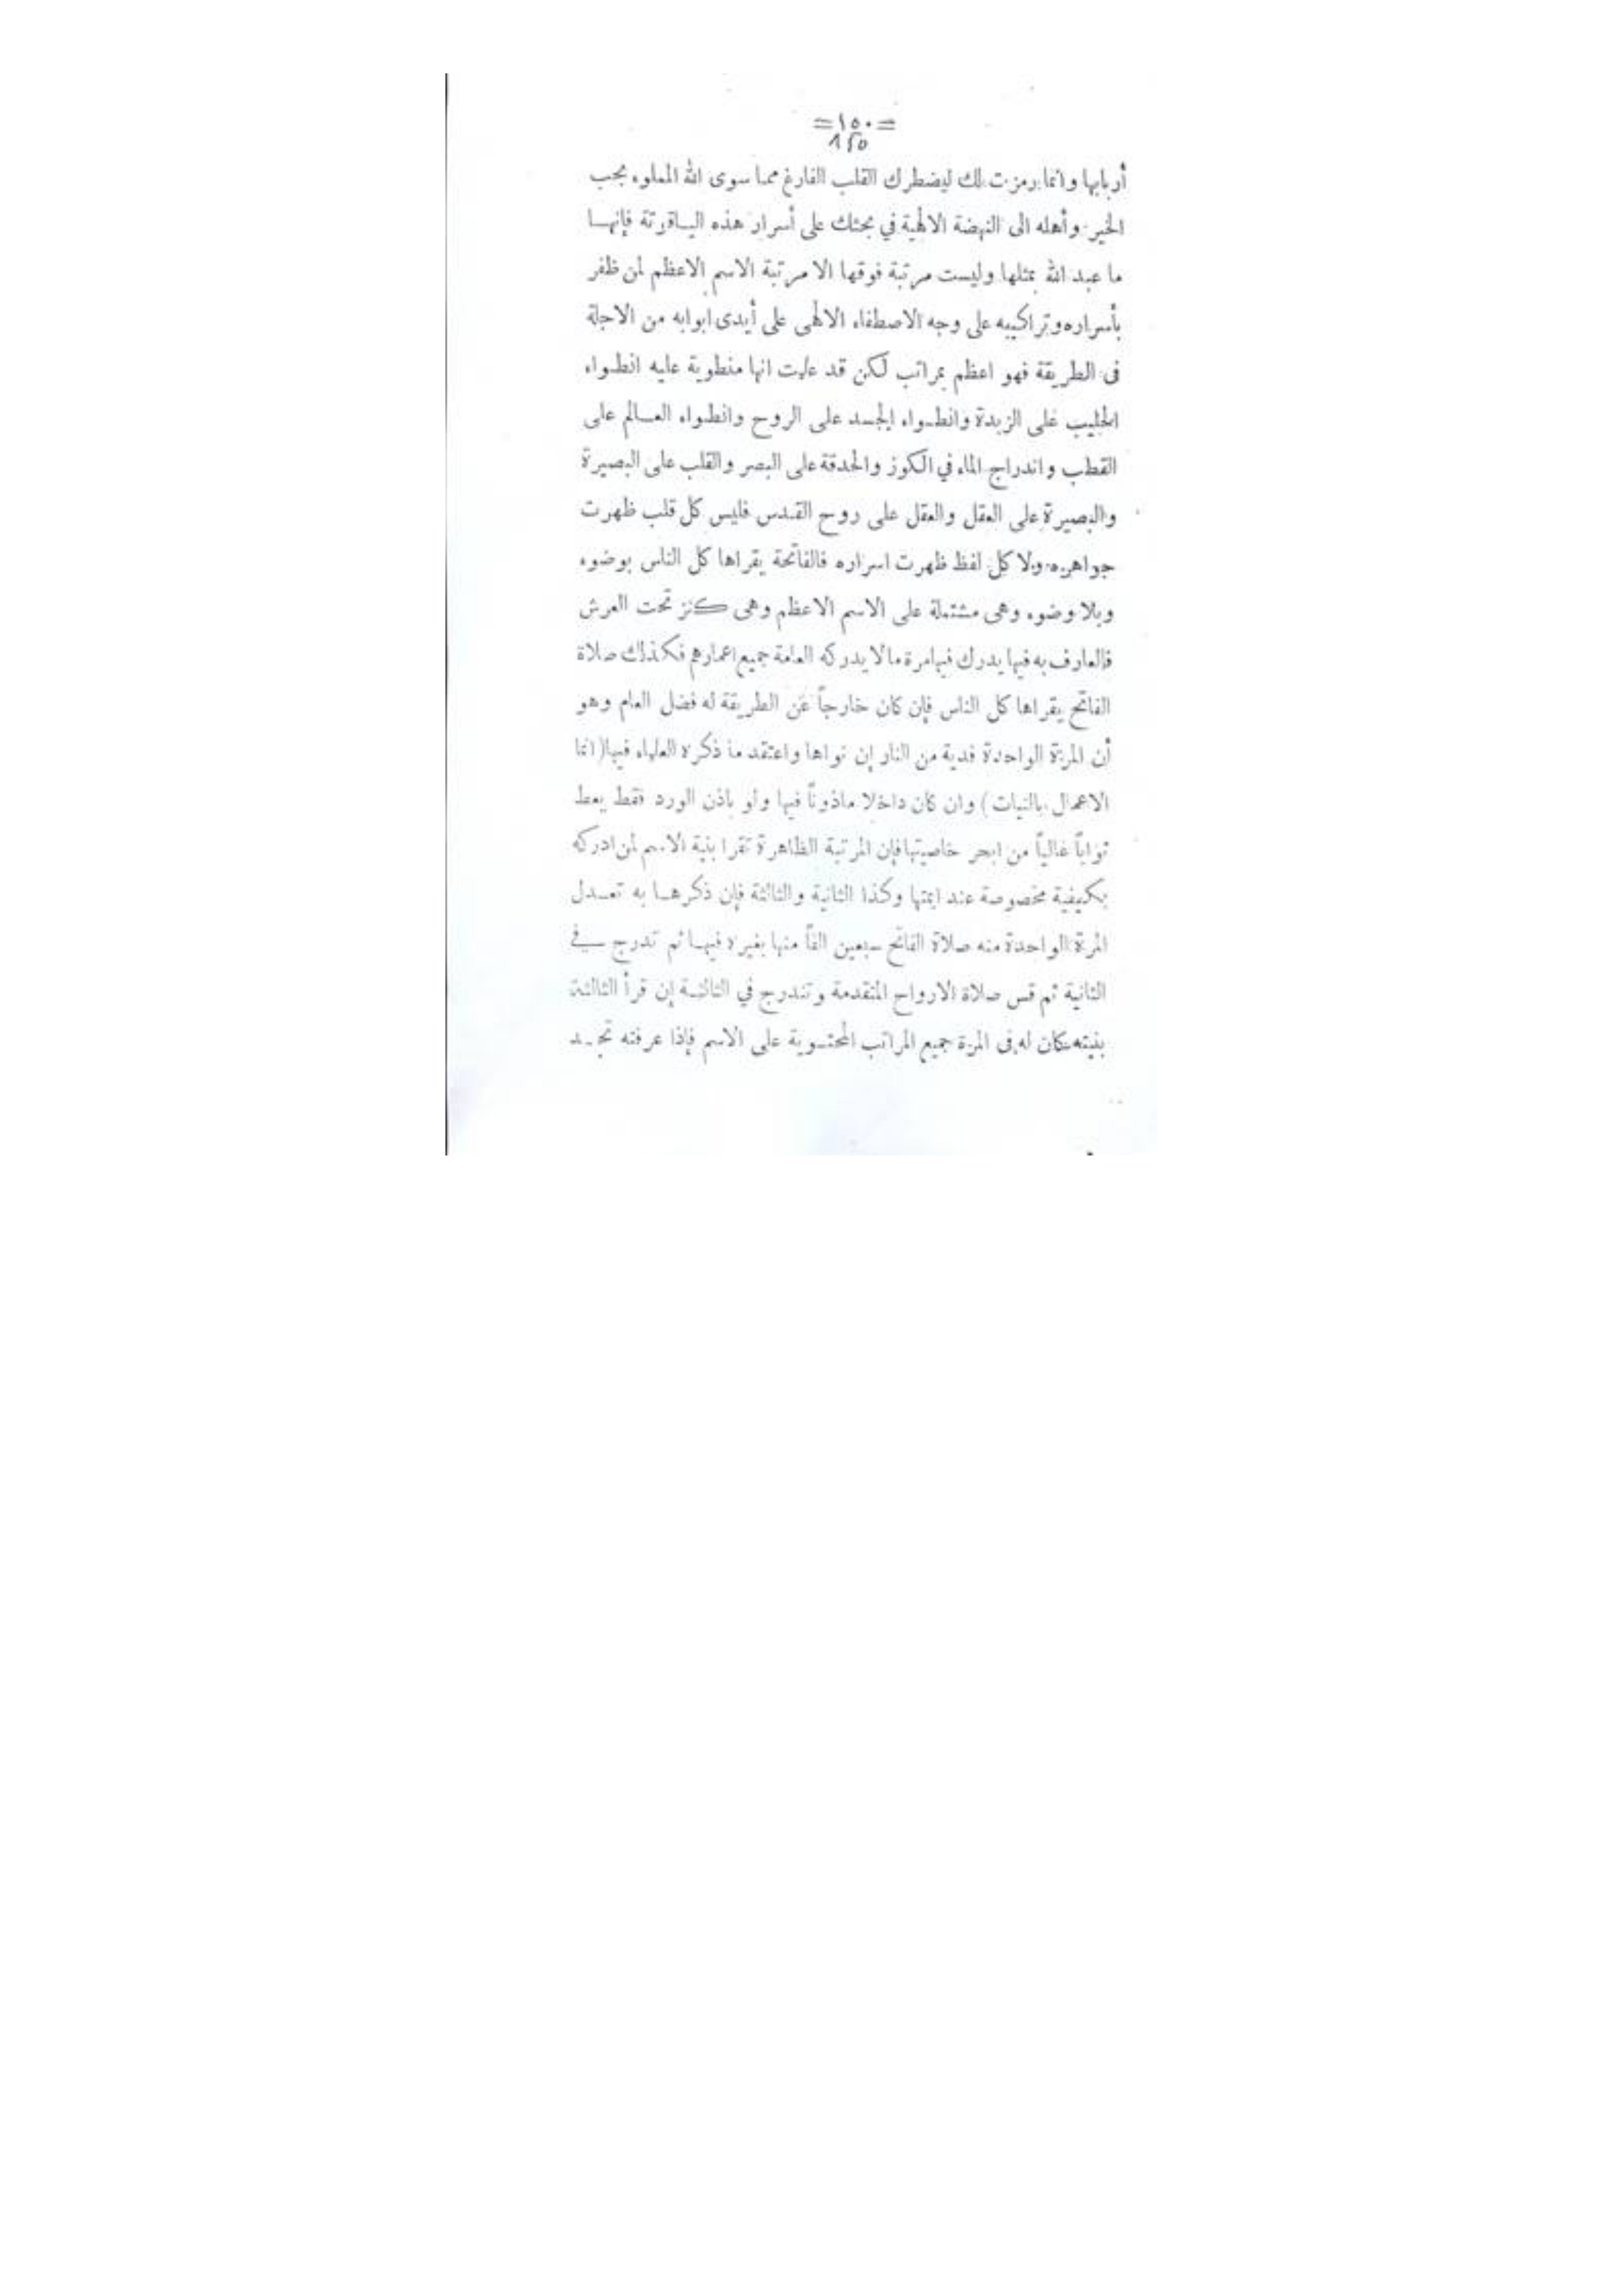 =١٥٠=
150
أربابها وانما رمزت لك ليضطرك القلب الفارغ مما سوى الله المملوء بحب
الخير وأهله الى النهضة الالهية في بحثك على أسرار هذه الياقوتة فإنها
ما عبد الله بمثلها وليست مرتبة فوقها الا مرتبة الاسم الاعظم لمن ظفر
بأسراره وتراكيبه على وجه الاصطفاء الالهى على أيدى ابوابه من الاجلة
فى الطريقة فهو اعظم بمراتب لكن قد علمت انها منطوية عليه انطواء
الحليب على الزبدة وانطواء الجسد على الروح وانطواء العالم على
القطب واندراج الماء في الكوز والحدقة على البصر والقلب على البصيرة
والبصيرة على العقل والعقل على روح القدس فليس كل قلب ظهرت
جواهره ولا كل لفظ ظهرت اسراره فالفاتحة يقراها كل الناس بوضوء
وبلا وضوء وهى مشتملة على الاسم الاعظم وهى كنز تحت العرش
فالعارف به فيها يدرك فيها مرة مالا يدركه العامة جميع اعمارهم فكذلك صلاة
الفاتح يقراها كل الناس فإن كان خارجاً عن الطريقة له فضل العام وهو
أن المرة الواحدة فدية من النار إن نواها واعتقد ما ذكره العلماء فيها (انما
الاعمال بالنيات) وان كان داخلا ماذوناً فيها ولو باذن الورد فقط يعط
ثواباً غالياً من ابحر خاصيتها فإن المرتبة الظاهرة تقرا بنية الاسم لمن ادركه
بكيفية مخصوصة عند ايمتها وكذا الثانية والثالثة فإن ذكرها به تعدل
المرة الواحدة منه صلاة الفاتح سبعين الفاً منها بغيره فيها ثم تدرج في
الثانية ثم قس صلاة الارواح المتقدمة وتندرج في الثالثة إن قرأ الثالثة
بنيته كان له فى المرة جميع المراتب المحتوية على الاسم فإذا عرفته تجد